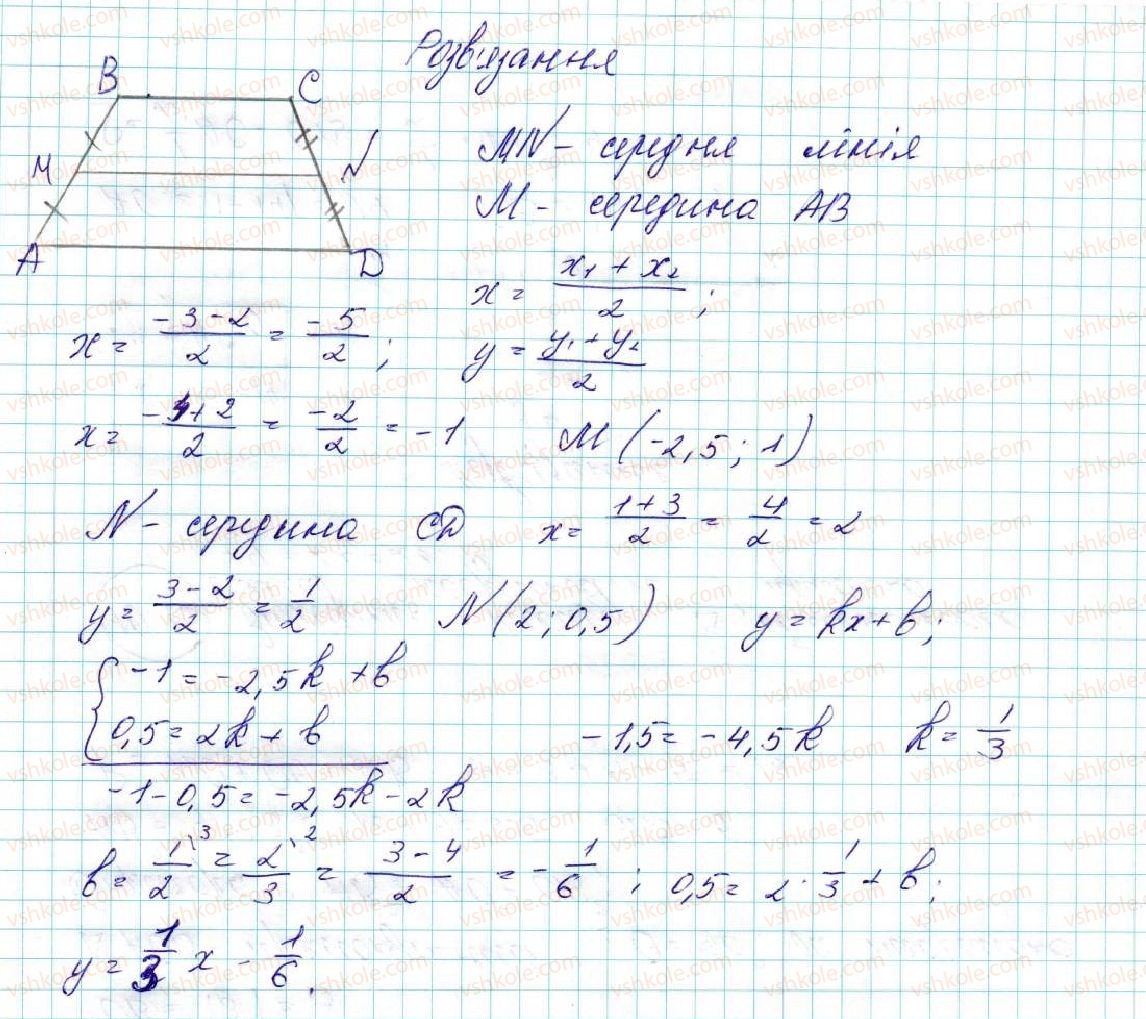 Розв'язання
B C
M N
A D
MN - середня лінія
M - середина AB
x = (x₁ + x₂)/2 ;
x = (-3-2)/2 = -5/2 ; y = (y₁ + y₂)/2
x = (-4+2)/2 = -2/2 = -1 M (-2,5; 1)
N - середина CD x = (1+3)/2 = 4/2 = 2
y = (3-2)/2 = 1/2 N (2; 0,5) y = kx + b;
{ -1 = -2,5k + b
0,5 = 2k + b -1,5 = -4,5k k = 1/3
-1 - 0,5 = -2,5k - 2k
b = 1/2 \3 = 2/3 \2 = (3-4)/2 = -1/6 ; 0,5 = 2 · 1/3 + b;
y = 1/3 x - 1/6 .
vshkole.com